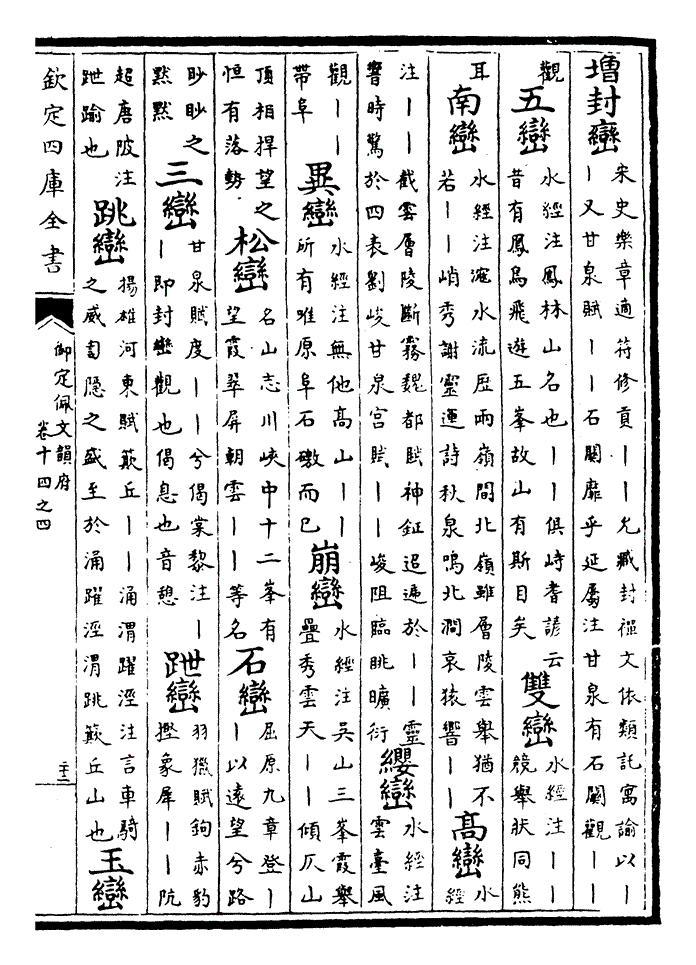 增封巒
宋史樂章適符修貢丨丨允臧封禪文依類託寓諭以丨
丨又甘泉賦丨丨石關靡乎延屬注甘泉有石闕觀丨丨
觀
五巒
水經注鳳林山名也丨丨俱峙耆諺云
昔有鳳鳥飛遊五峯故山有斯目矣
雙巒
水經注丨丨
競舉狀同熊
耳
南巒
水經注滱水流歷兩嶺間北嶺雖層陵雲舉猶不
若丨丨峭秀謝靈運詩秋泉鳴北澗哀猿響丨丨
高巒
水
經
注丨丨截雲層陵斷霧魏都賦神鉦迢遞於丨丨靈
響時驚於四表劉峻甘泉宮賦丨丨峻阻臨眺曠衍
纓巒
水經注
雲臺風
觀丨丨
帶阜
異巒
水經注無他高山丨丨
所有唯原阜石磝而已
崩巒
水經注吳山三峯霞舉
疊秀雲天丨丨傾仄山
頂相捍望之
恒有落勢
松巒
名山志川峽中十二峯有
望霞翠屏朝雲丨丨等名
石巒
屈原九章登丨
丨以遠望兮路
眇眇之
默默
三巒
甘泉賦度丨丨兮偈棠黎注丨
丨即封巒觀也偈息也音憩
跇巒
羽獵賦鉤赤豹
摼象犀丨丨阬
超唐陂注
跇踰也
跳巒
揚雄河東賦簸丘丨丨涌渭躍涇注言車騎
之威訇隱之盛至於涌躍涇渭跳簸丘山也
玉巒
欽定四庫全書
御定佩文韻府
卷十四之四
二十三